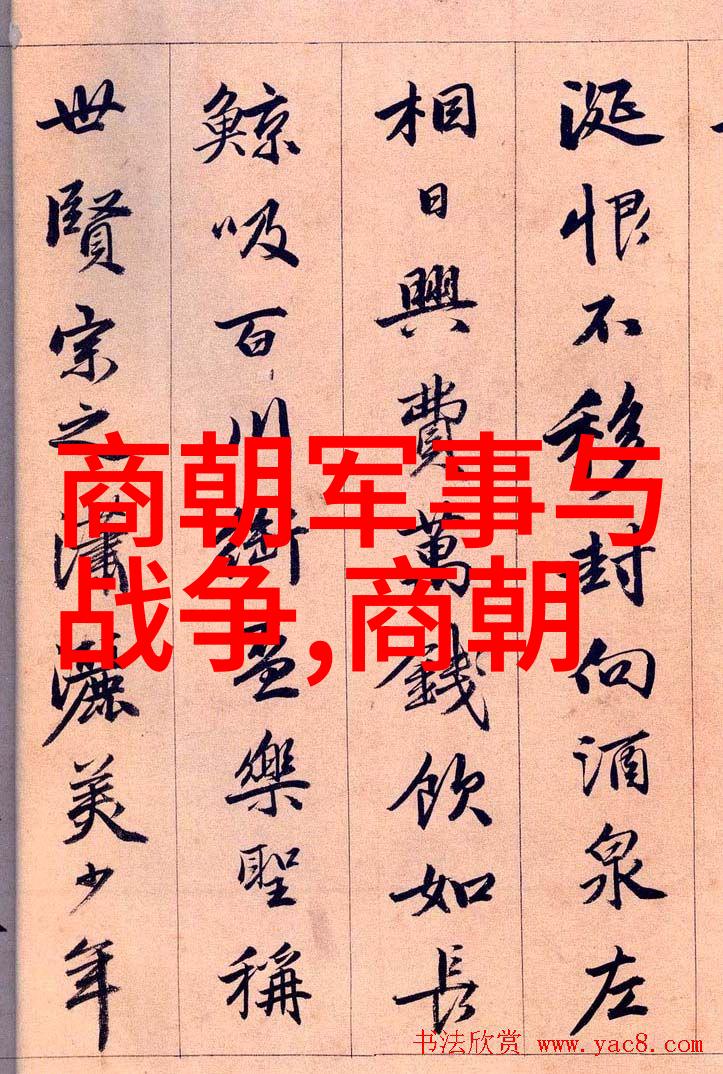 涎恨不移封向酒泉左
相日興費萬錢飲如長
鯨吸百川銜盃樂聖稱
世賢宗之瀟灑美少年
商朝军事与
战争,商朝
书法欣赏 www.yac8.com